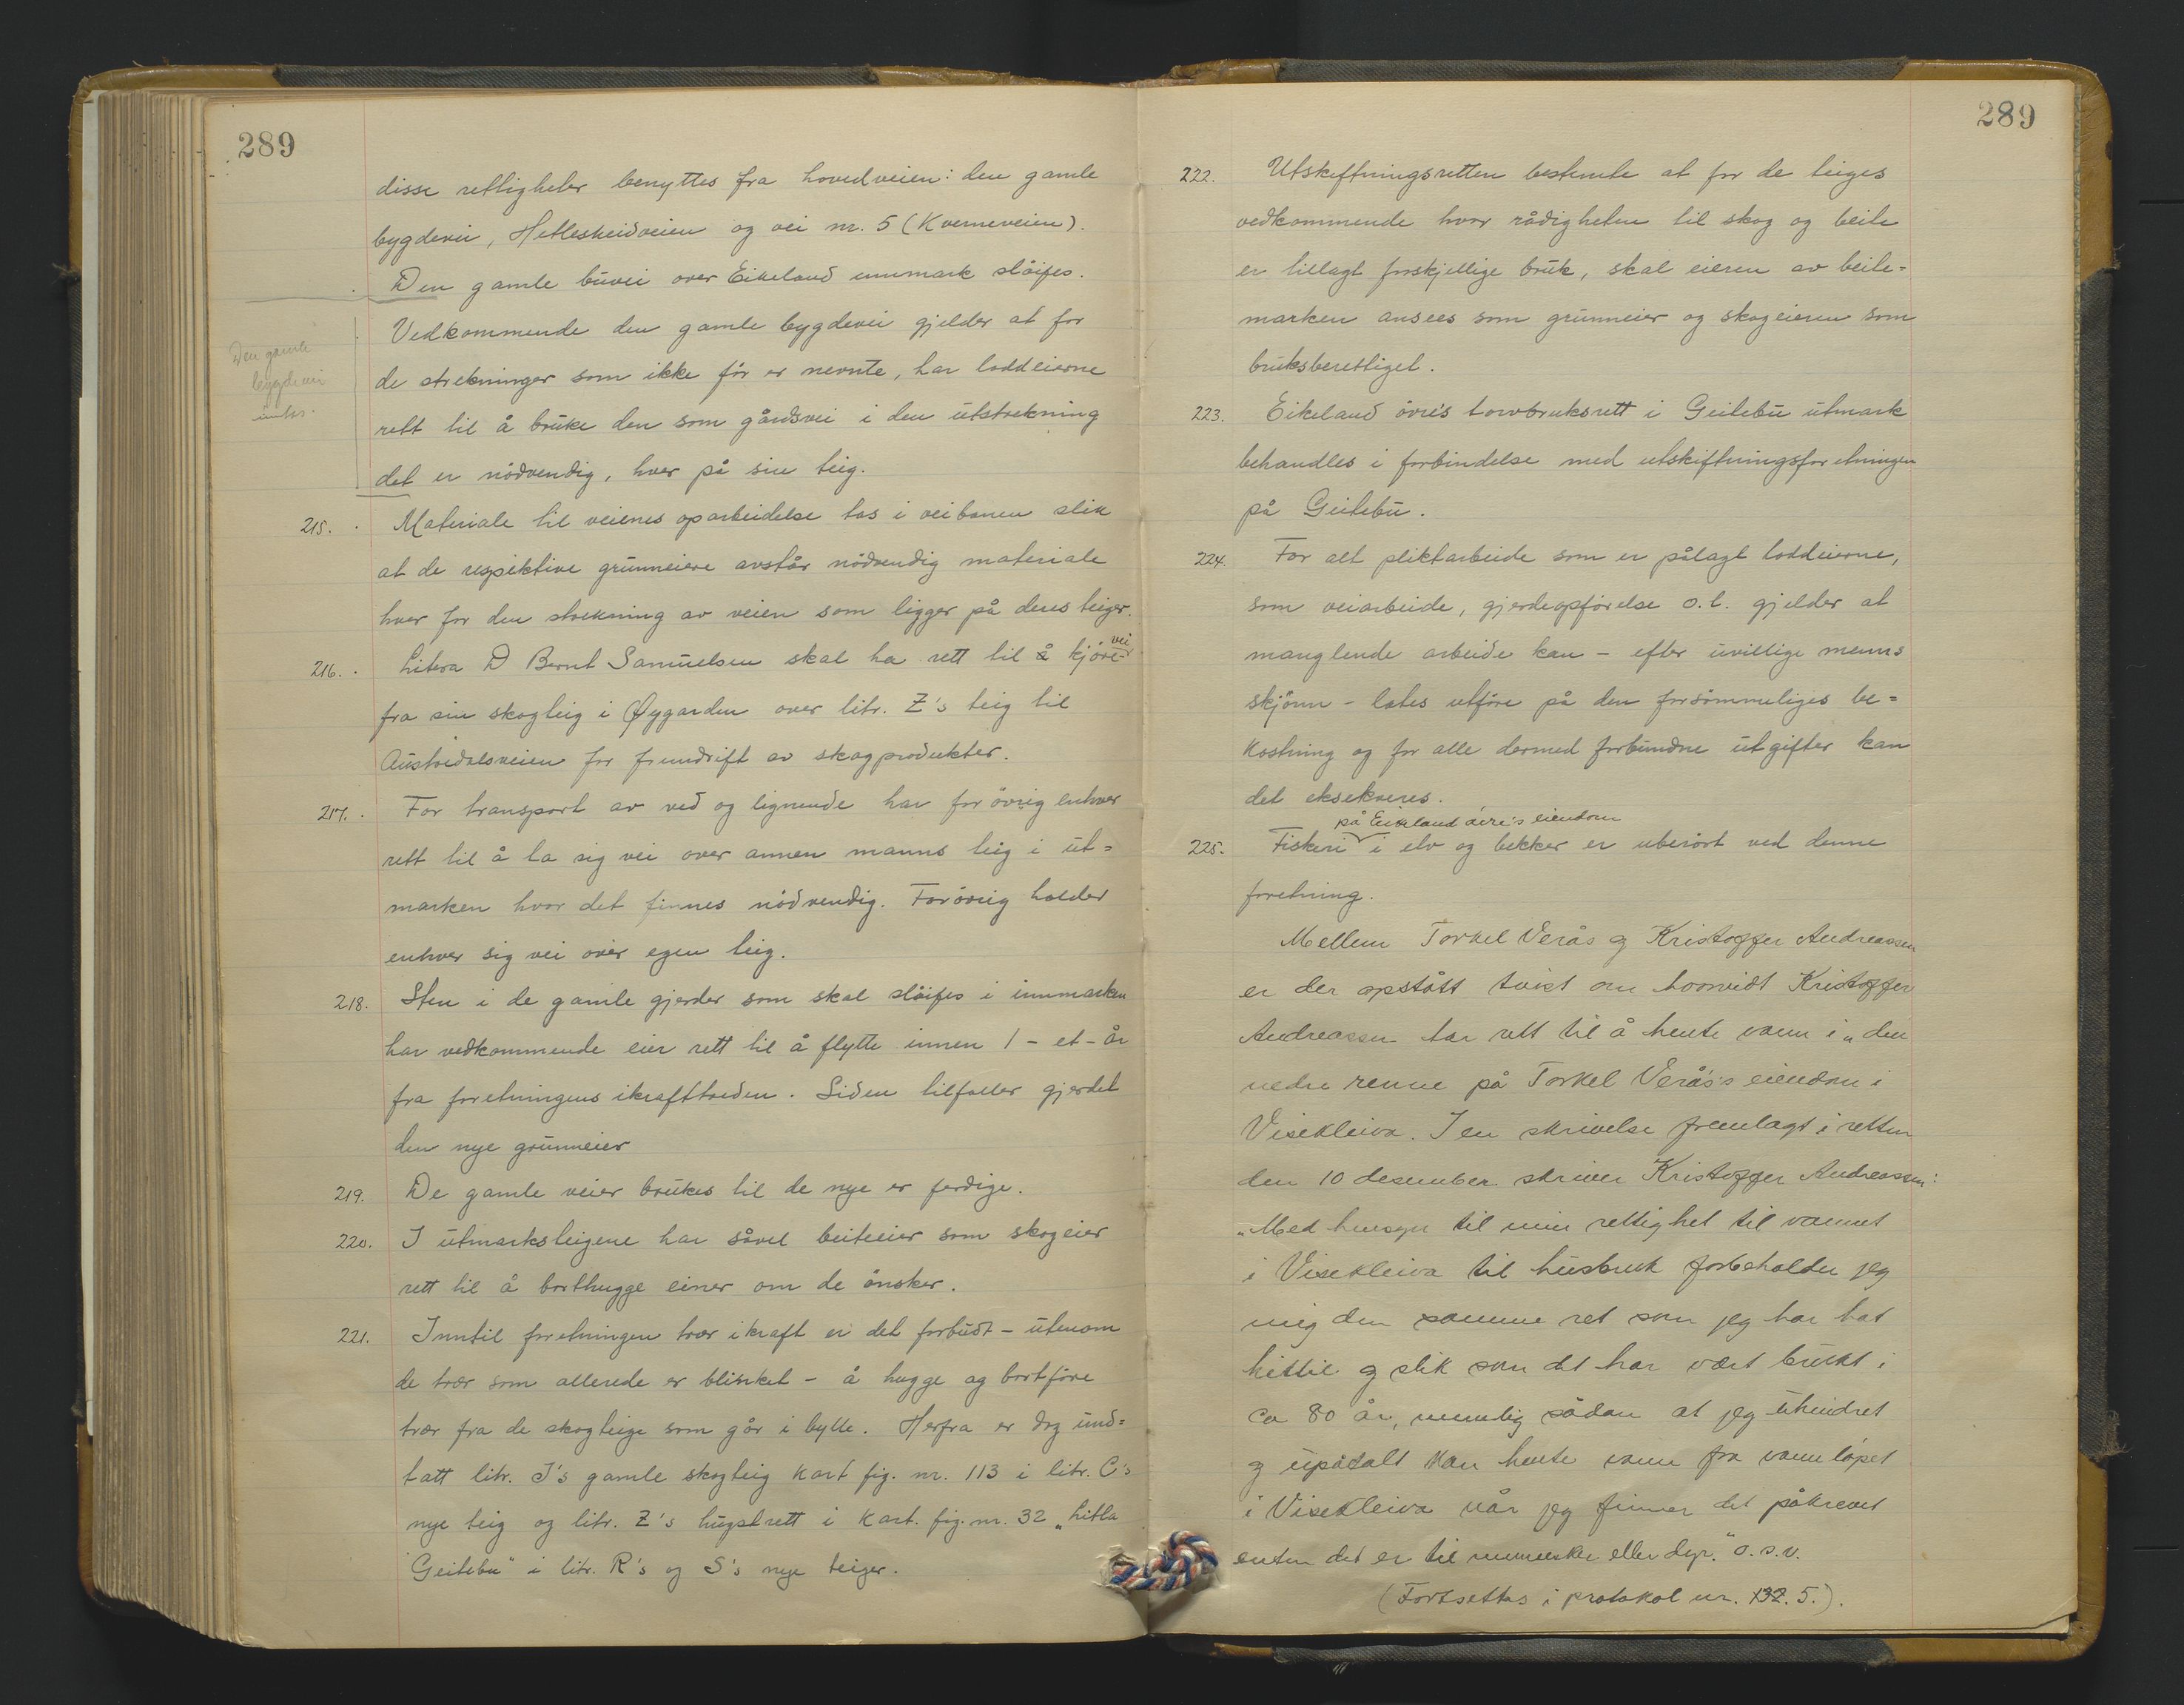 289
disse rettigheter benyttes fra hovedveien: den gamle
bygdevei, Hetleskeidveien og vei nr. 5 (Kverneveien).
Den gamle buvei over Eikeland innmark slöifes.
Vedkommende den gamle bygdevei gjelder at for
Den gamle
bygdevei
de strekninger som ikke för er nevnte, har loddeierne
rett til å bruke den som gårdsvei i den utstrekning
det er nödvendig, hver på sin teig.
215. Materiale til veienes oparbeidelse tas i veibanen slik
at de respektive grunneiere avstår nödvendig materiale
hver for den strekning av veien som ligger på deres teiger.
216. Litera D Bernt Samuelsen skal ha rett til å kjöre-vei
fra sin skogteig i Øygarden over litr. Z's teig til
Austredalsveien for fremdrift av skogprodukter.
217. For transport av ved og lignende har for övrig enhver
rett til å ta sig vei over annen manns teig i ut=
marken hvor det finnes nödvendig. Forövrig holder
enhver sig vei over egen teig.
218. Sten i de gamle gjerder som skal slöifes i innmarken
har vedkommende eier rett til å flytte innen 1 - et - år
fra forretningens ikrafttreden. Siden tilfaller gjerdet
den nye grunneier
219. De gamle veier brukes til de nye er ferdige.
220. I utmarksteigene har såvel beiteeier som skogeier
rett til å borthugge einer om de önsker.
221. Inntil forretningen trær ikraft er det forbudt - utenom
de trær som allerede er blinket - å hugge og bortföre
trær fra de skogteige som går i bytte. Herfra er dog und=
tatt litr. I's gamle skogteig kart fig. nr. 113 i litr. C's
nye teig og litr. Z's hugstrett i kart. fig. nr. 32 „Litla
Geitebu" i litr. R's og S's nye teiger.
289
222. Utskiftningsretten bestemte at for de teiges
vedkommende hvor rådigheten til skog og beite
er tillagt forskjellige bruk, skal eieren av beite=
marken ansees som grunneier og skogeieren som
bruksberettiget.
223. Eikeland övre's torvbruksrett i Geitebu utmark
behandles i forbindelse med utskiftningsforretningen
på Geitebu.
224. For alt pliktarbeide som er pålagt loddeierne,
som veiarbeide, gjerdeopförelse o.l. gjelder at
manglende arbeide kan - efter uvillige menns
skjönn - lates utföre på den forsömmeliges be=
kostning og for alle dermed forbundne utgifter kan
det eksekveres.
på Eikeland övre's eiendom
225. Fiskeri i elv og bekker er uberört ved denne
forretning.
Mellem Torkel Verås og Kristoffer Andreassen
er der opstått tvist om hvorvidt Kristoffer
Andreassen har rett til å hente vann i „den
nedre renne på Torkel Verås's eiendom i
Visekleiva. I en skrivelse fremlagt i retten
den 10 desember skriver Kristoffer Andreassen:
„Med hensyn til min rettighet til vannet
i Visekleiva til husbruk forbeholder jeg
mig den samme ret som jeg har hat
hittil og slik som det har vært brukt i
ca 80 år, nemlig sådan at jeg uhindret
og upåtalt kan hente vann fra vannlöpet
i Visekleiva når jeg finner det påkrevet
enten det er til mennesker eller dyr." o.s.v.
(Fortsettes i protokol nr. 132. 5.).